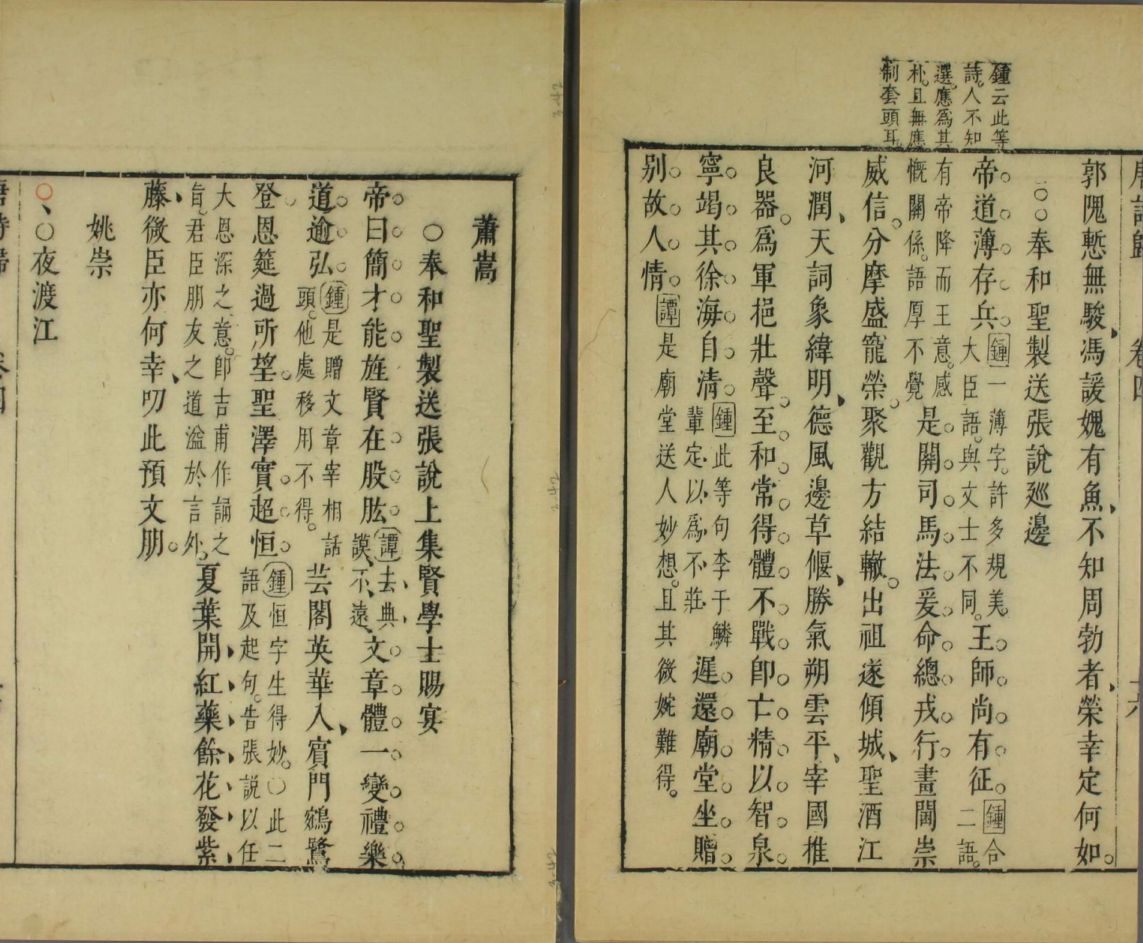 唐詩歸 卷四 十六
郭隗慙無駿馮諼媿有魚不知周勃者榮幸定何如
奉和聖製送張說廵邊
鍾云此等
詩人不知
選應爲其
朴且無應
制套頭耳
帝道薄存兵鍾一薄字許多規美
大臣語與文士不同王師尚有征鍾合
二語
有帝降而王意感
慨關係語厚不覺是關司馬法爰命總戎行畫閫崇
威信分摩盛寵榮聚觀方結轍出祖遂傾城聖酒江
河潤天詞象緯明德風邊草偃勝氣朔雲平宰國推
良器爲軍挹壯聲至和常得體不戰卽亡精以智泉
寧竭其徐海自清鍾此等句李于鱗
輩定以爲不莊遲還廟堂坐贈
别故人情譚是廟堂送人妙想且其微婉難得
蕭嵩
奉和聖製送張說上集賢學士賜宴
帝曰簡才能旌賢在股肱譚去典
謨不遠文章體一變禮樂
道逾弘鍾是贈文章宰相話
頭他處移用不得芸閣英華入賓門鵷鷺
登恩筵過所望聖澤實超恒鍾恒字生得妙○此二
語及起句告張說以任
大恩深之意卽吉甫作誦之
旨君臣朋友之道溢於言外夏葉開紅藥餘花發紫
藤微臣亦何幸叨此預文朋
姚崇
夜渡江
唐詩歸 卷四